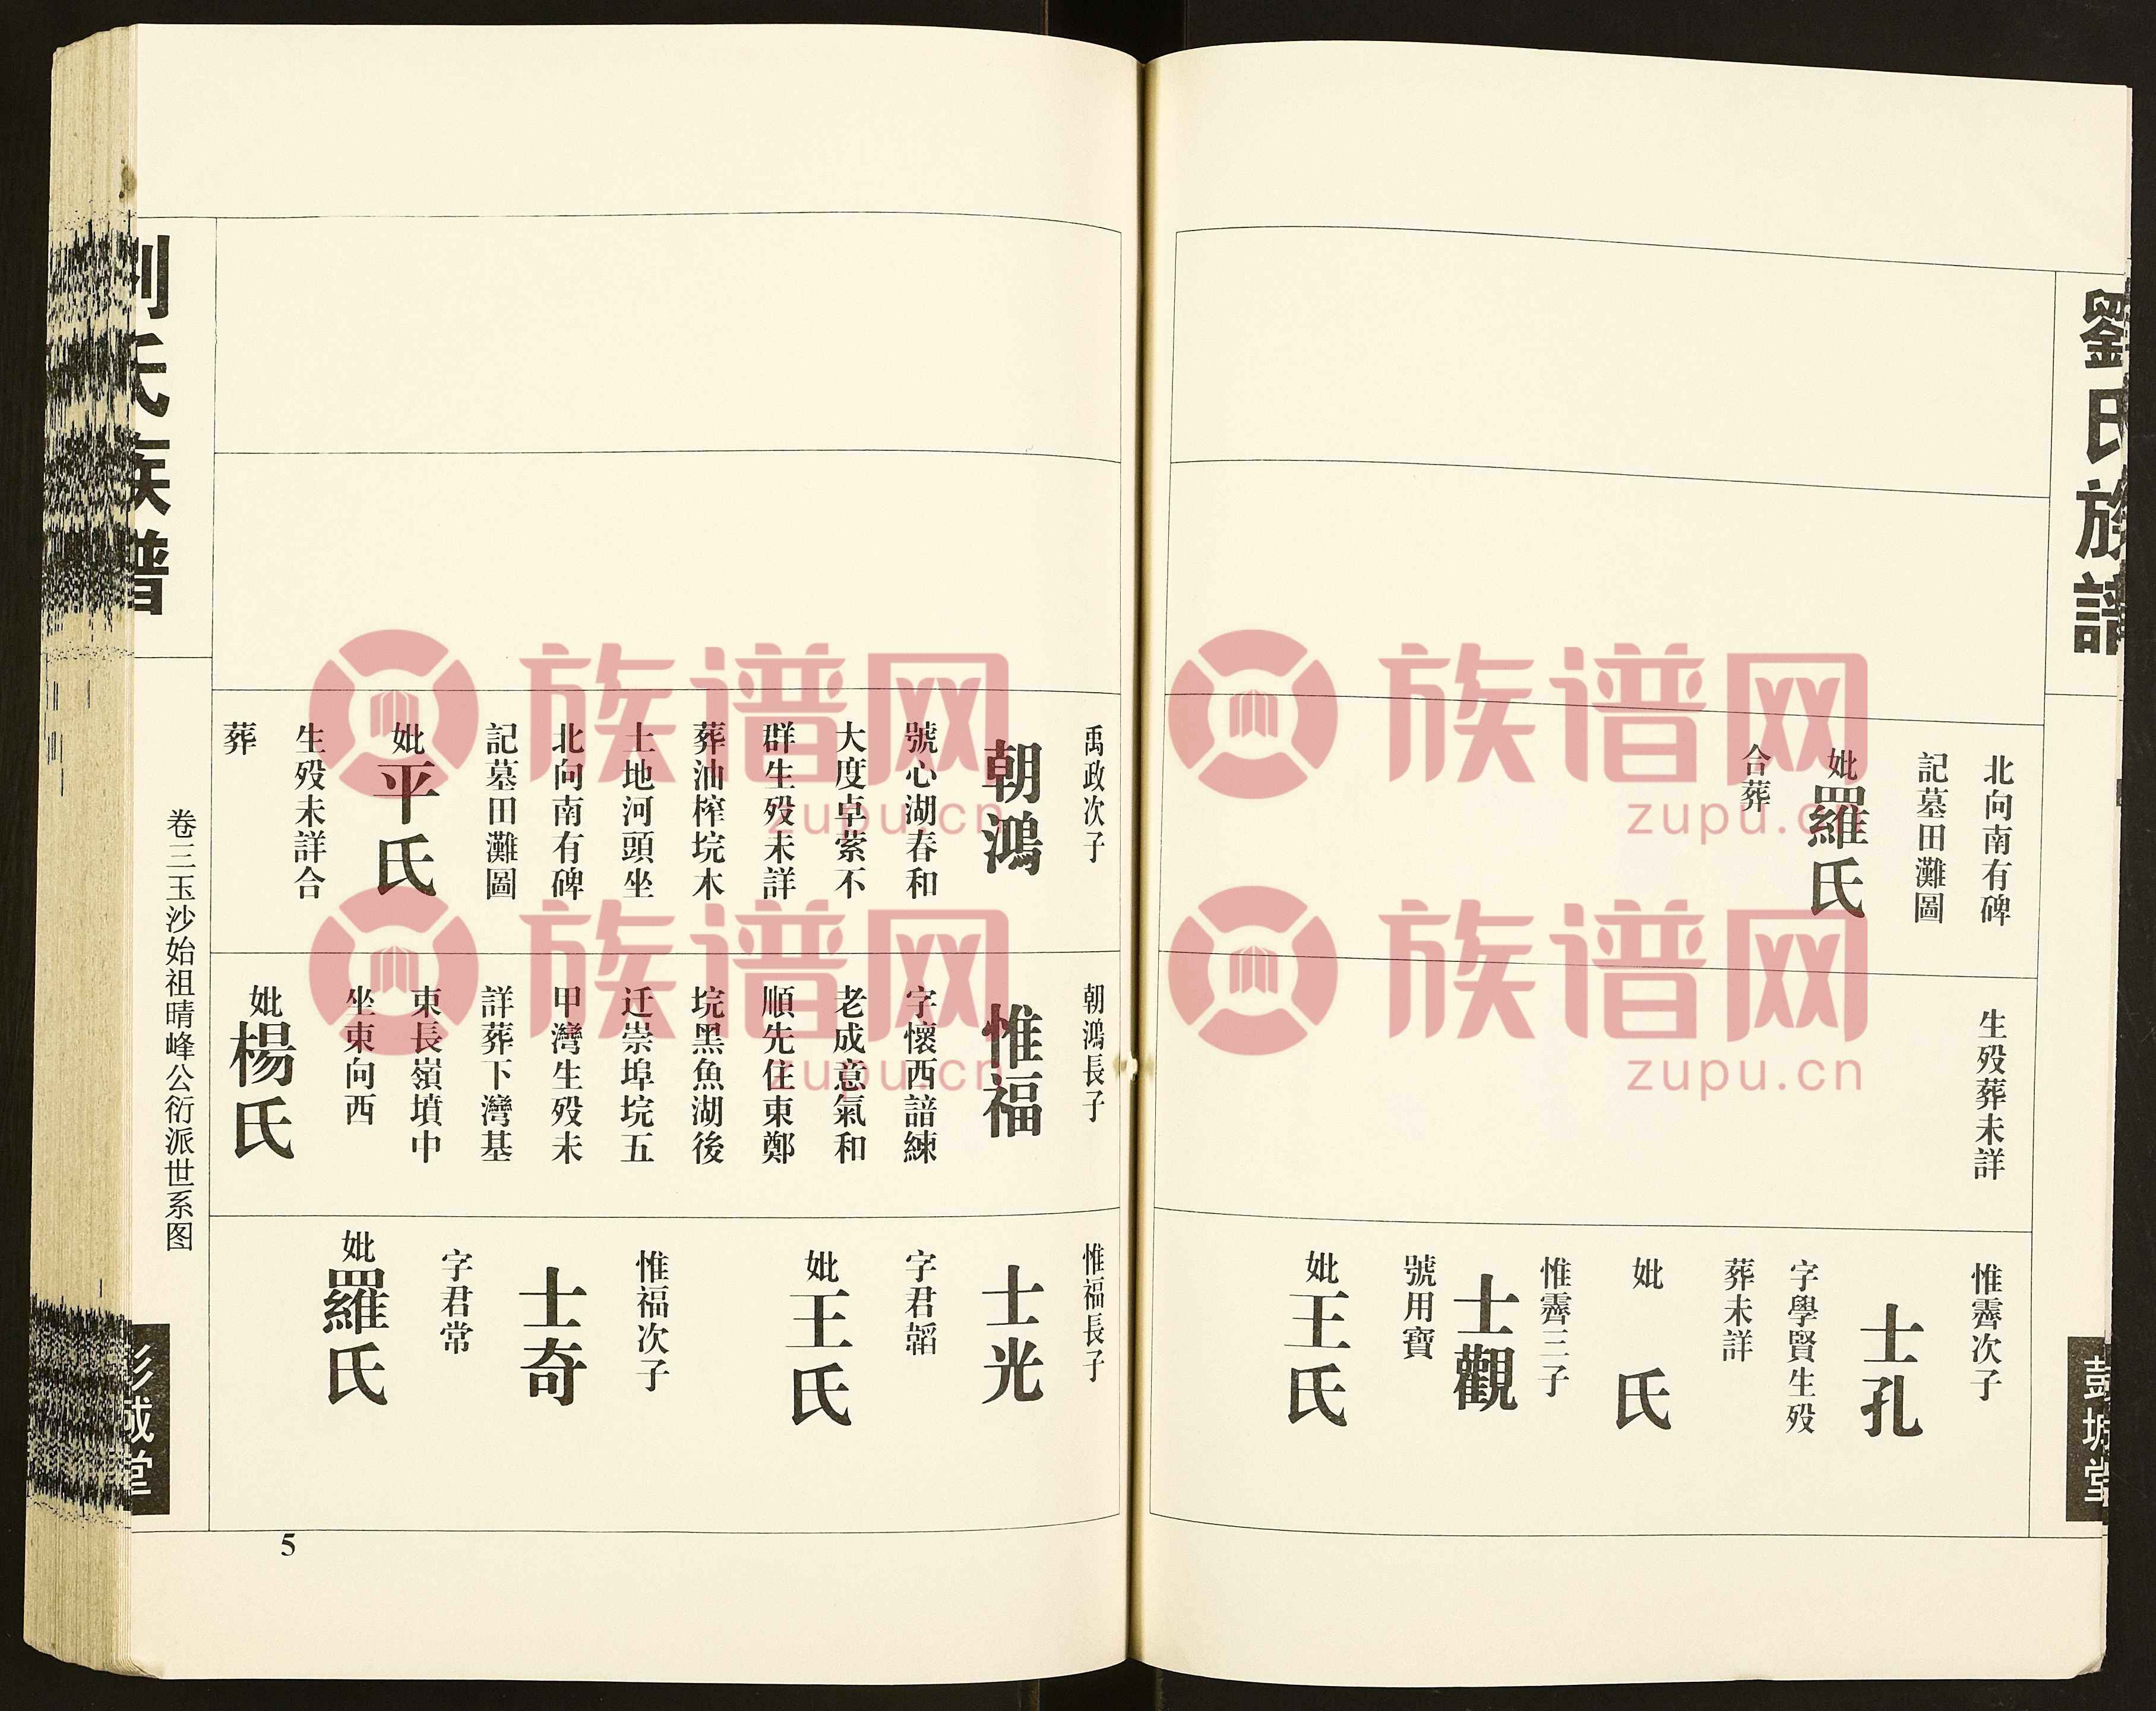 劉氏族譜
彭城堂
北向南有碑
記墓田灘圖
妣羅氏
合葬
生殁葬未詳
惟霽次子
士孔
字學賢生殁
葬未詳
妣 氏
惟霽三子
士觀
號用寶
妣王氏
禹政次子
朝鴻
號心湖春和
大度卓萦不
群生殁未詳
葬油榨垸木
土地河頭坐
北向南有碑
記墓田灘圖
妣平氏
生殁未詳合
葬
朝鴻長子
惟福
字懷西諳練
老成意氣和
順先住東鄭
垸黑魚湖後
迁崇埠垸五
甲灣生殁未
詳葬下灣基
東長嶺墳中
坐東向西
妣楊氏
惟福長子
士光
字君韜
妣王氏
惟福次子
士奇
字君常
妣羅氏
劉氏族譜
卷三玉沙始祖晴峰公衍派世系图
彭城堂
5
族谱网
zupu.cn
族谱网
zupu.cn
族谱网
zupu.cn
族谱网
zupu.cn